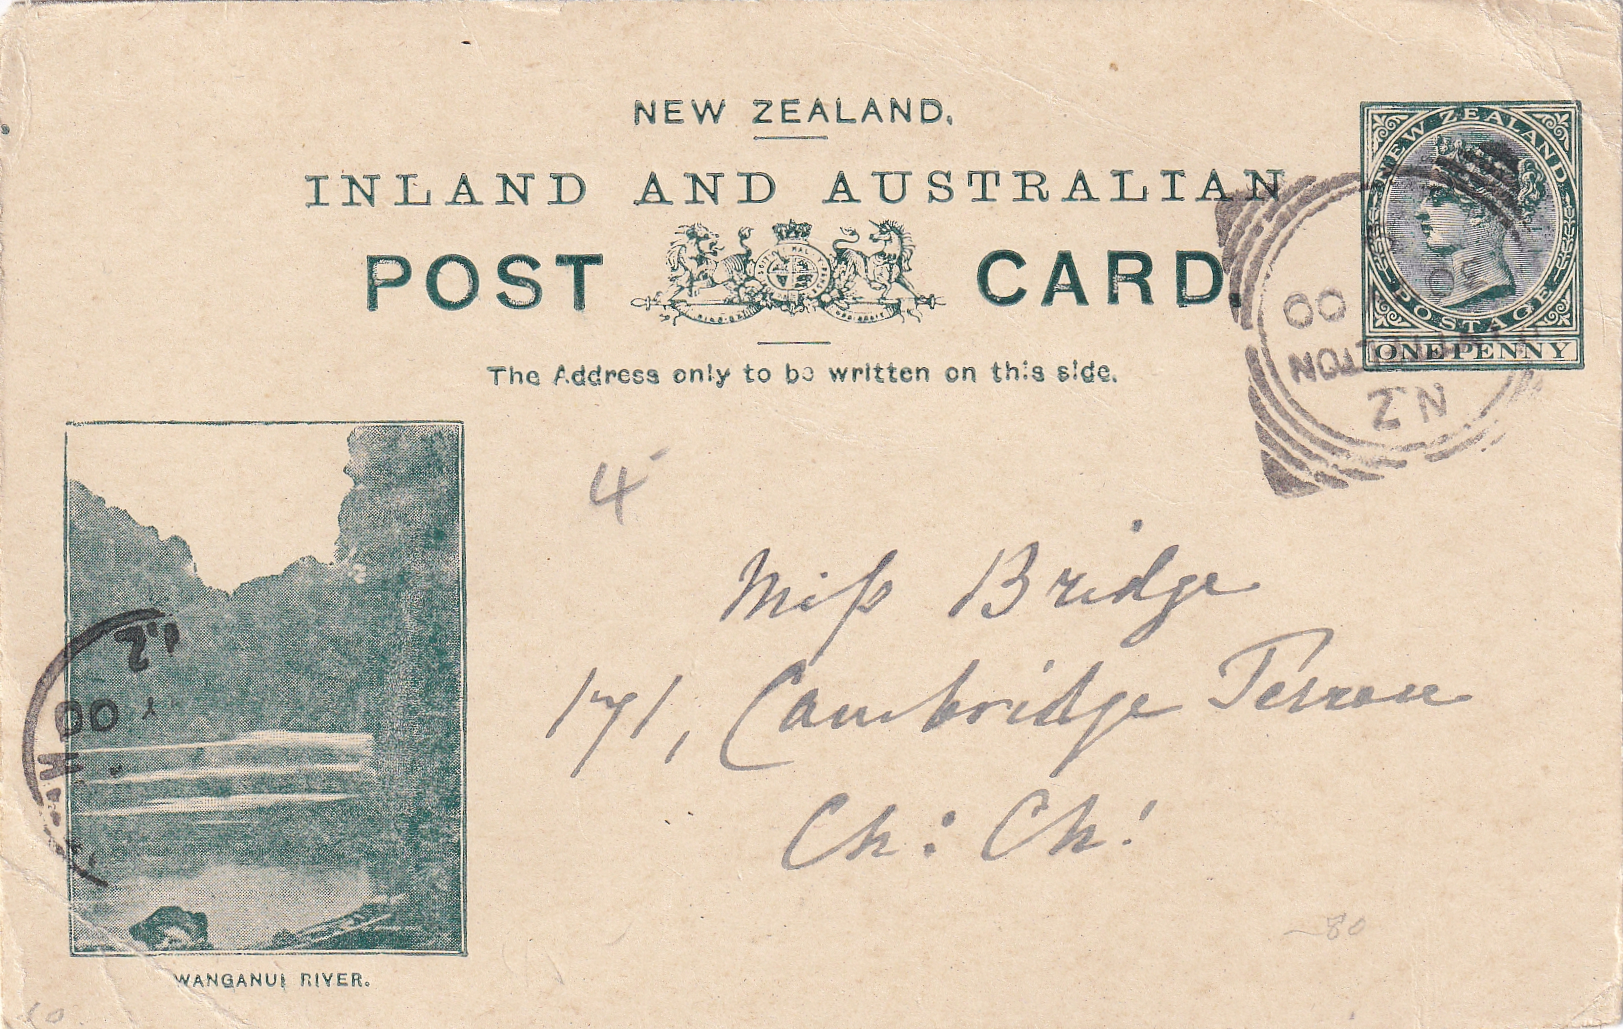 NEW ZEALAND.
INLAND AND AUSTRALIAN
POST CARD.
The Address only to be written on this side.
NEW ZEALAND
POSTAGE
ONE PENNY
00
N.Z
4
Miss Bridge
171, Cambridge Terrace
Ch: Ch:
00
WANGANUI RIVER.
80